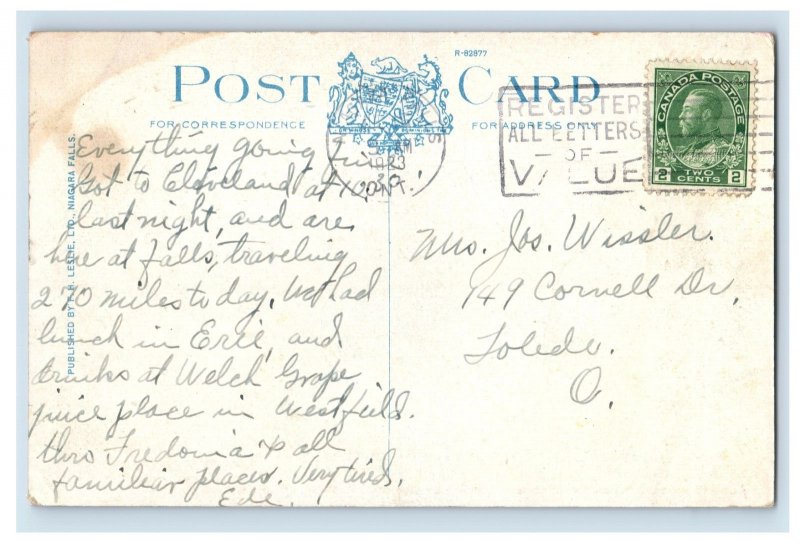 R-82877
POST CARD
FOR CORRESPONDENCE
FOR ADDRESS ONLY
PUBLISHED BY F. H. LESLIE, LTD., NIAGARA FALLS.
CANADA POSTAGE
2 TWO CENTS 2
REGISTER
ALL LETTERS
- OF -
VALUE
AM
1923
ONT.
Everything going fine
Got to Cleveland at
last night, and are
here at falls, traveling
270 miles to day. We had
lunch in Erie, and
drinks at Welch Grape
juice place in Westfield.
thro Fredonia & all
familiar places. Very tired.
Ede.
Mrs. Jos. Wissler.
149 Cornell Dr,
Toledo.
O.